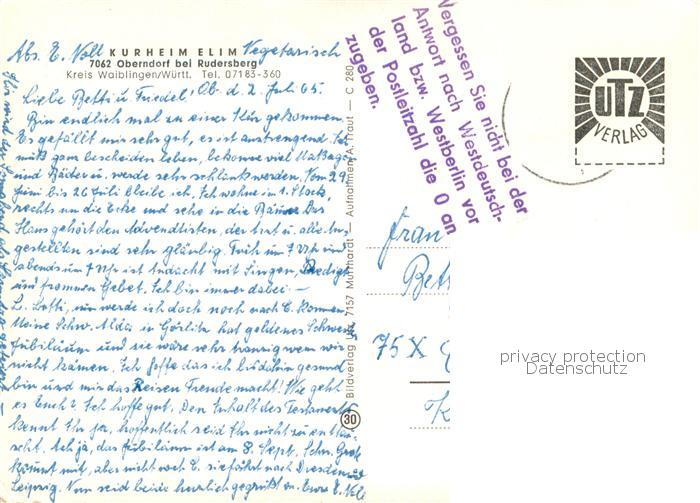 Abs. E. Noll KURHEIM ELIM Vegetarisch
7062 Oberndorf bei Rudersberg
Kreis Waiblingen/Württ. Tel. 07183-360
Liebe Betti u. Friedel! Ob. d. 2. Juli 65.
Bin endlich mal zu einer Kur gekommen.
Es gefällt mir sehr gut, es ist anstrengend. Ich
muß ganz bescheiden leben, bekomme viel Massagen
und Bäder u. werde sehr schlank werden. Vom 29.
Juni bis 26 Juli bleibe ich. Ich wohne im 1. Stock,
rechts um die Ecke und sehe in die Bäume. Das
Haus gehört den Adventisten, der Arzt u. alle An-
gestellten sind sehr gläubig. Früh um 7 Uhr und
abends um 7 Uhr ist Andacht mit Singen, Predigt
und frommen Gebet. Ich bin immer dabei –
L. Betti, nun werde ich doch noch nach C. kommen
Meine Schw. Alda in Görlitz hat goldenes Schwe
jubiläum und sie wäre sehr traurig wenn wir
nicht kämen. Ich hoffe das ich bis dahin gesund
bin und mir das Reisen Freude macht. Wie geht
es Euch? Ich hoffe gut. Den Inhalt des Testaments
kennt Ihr ja, hoffentlich seid Ihr nicht zu enttäu-
scht. Ach ja, das Jubiläum ist am 8. Sept. Schw.
kommt mit, aber nicht nach C. sie fährt nach Dresden und
Leipzig. Nun seid beide herzlich gegrüßt v. Eurer E. Noll
Bildverlag Utz 7157 Murrhardt — Aufnahme: A. Traut — C 280
30
Vergessen Sie nicht bei der
Antwort nach Westdeutsch-
land bzw. Westberlin vor
der Postleitzahl die O an
zugeben.
UTZ
VERLAG
Frau
Bett
75 X
privacy protection
Datenschutz